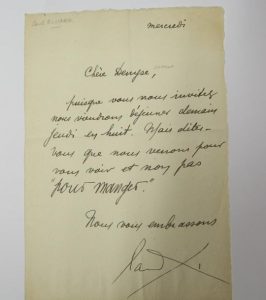 mercredi
Chère Denyse,
puisque vous nous invitez
nous viendrons déjeuner demain
jeudi en huit. Mais dites-
vous que nous venons pour
vous voir et non pas
"pour manger."
Nous vous embrassons
Paul